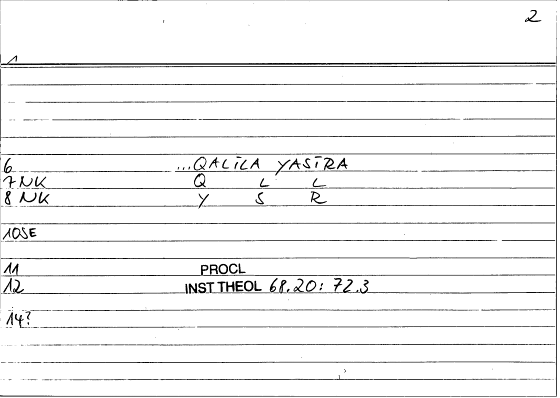 2
1
6 ...QALĪLA YASĪRA
7 NK Q L L
8 NK Y S R
10SE
11 PROCL
12 INST THEOL 68.20: 72.3
14?